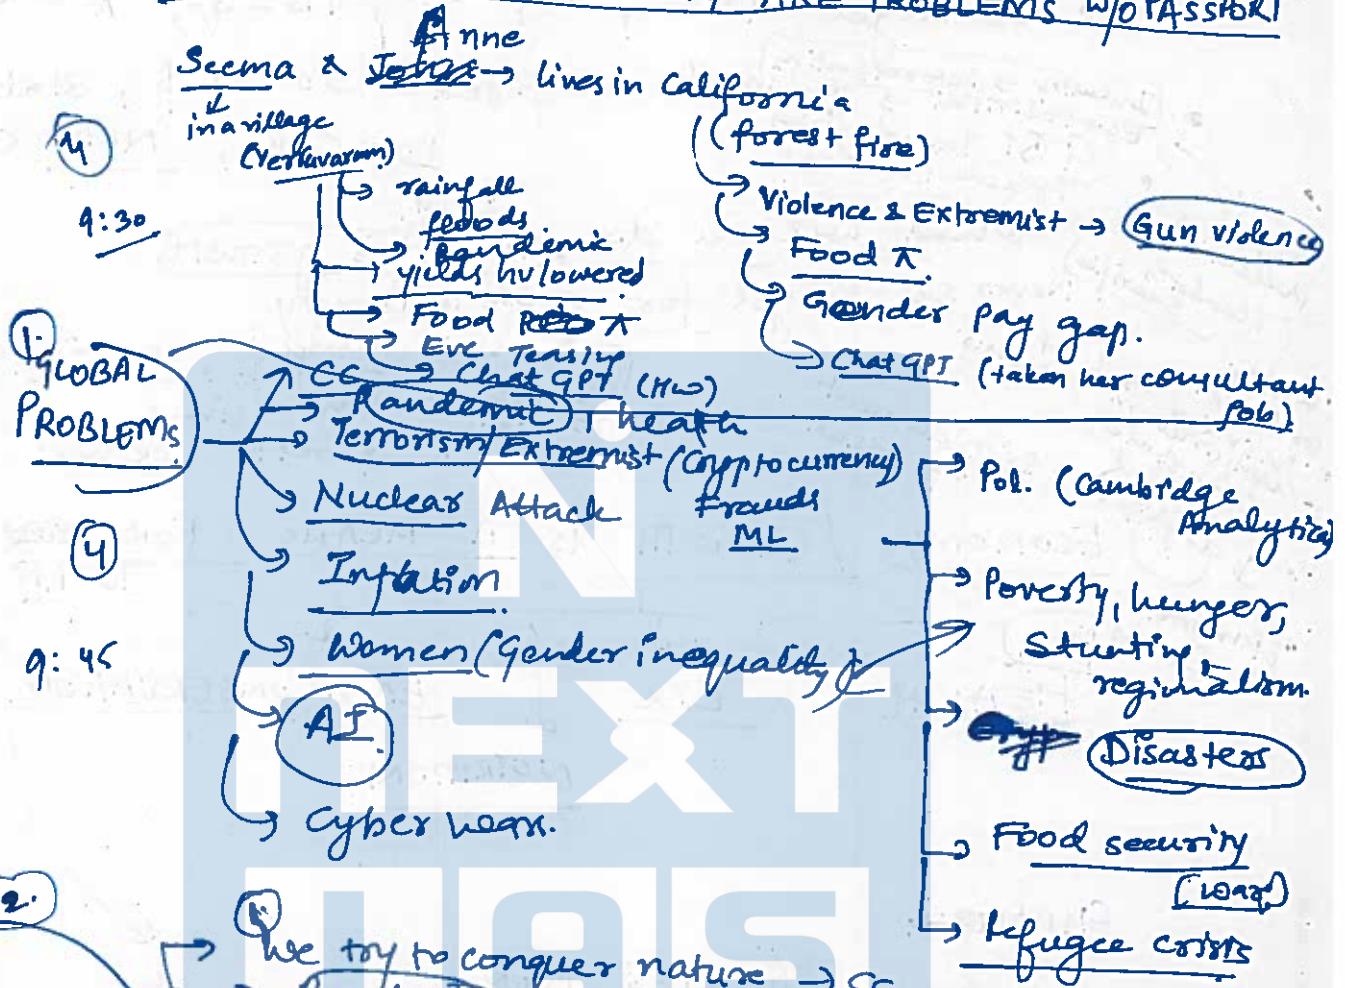 ARE PROBLEMS W/O PASSPORT
Anne
Seema & → lives in California
in a village
(forest fire)
4
9:30
rainfall
floods
pandemic
yields hv lowered
Food ↑
Eve Teasing
Chat GPT (HW)
Violence & Extremist → Gun violence
Food ↑.
Gender Pay gap.
Chat GPT (taken her consultant
Job)
1.
GLOBAL
PROBLEMS
CC
Pandemic / health
Terrorism/Extremist (Cryptocurrency)
Frauds
ML
Nuclear Attack
Inflation
Women (Gender inequality)
AI
Cyber wars.
4
9:45
Pol. (Cambridge
Analytica)
Poverty, hunger,
Stunting,
regionalism.
Disasters
Food security
(war)
Refugee crisis
2.
1.
We try to conquer nature → CC
NEXT
IAS